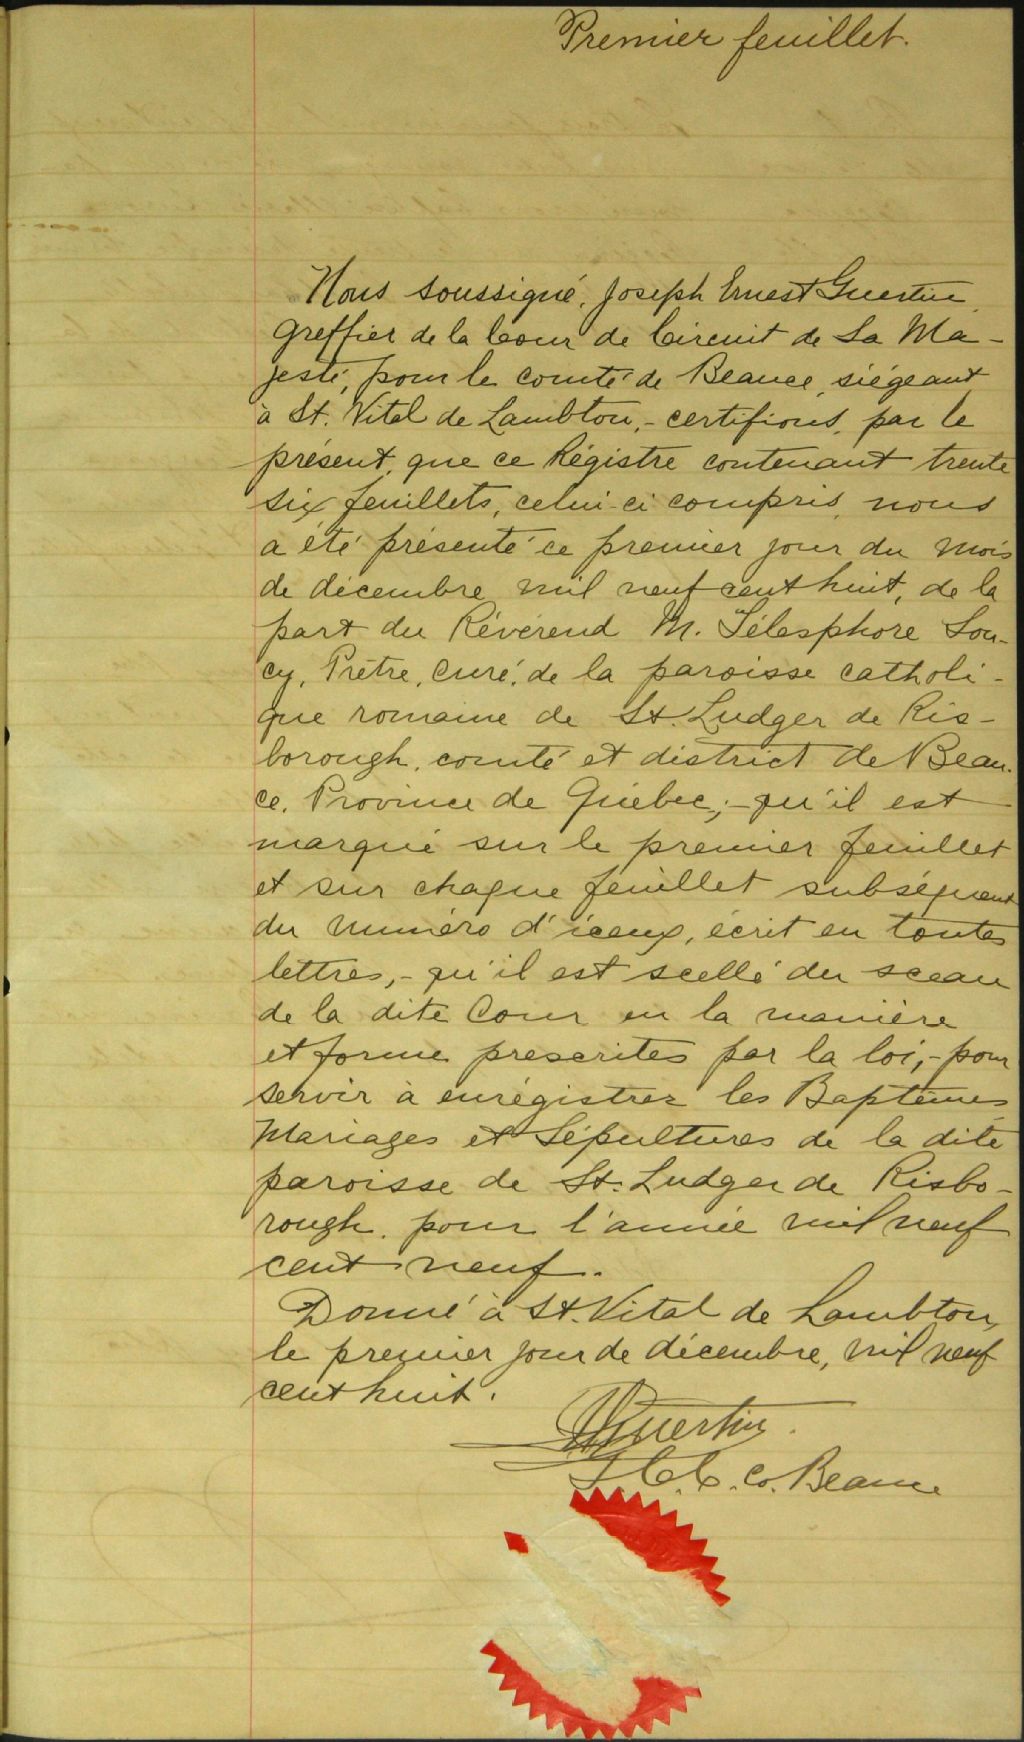 Premier feuillet.
Nous soussigné, Joseph Ernest Guertin
greffier de la Cour de Circuit de Sa Ma-
jesté, pour le comté de Beauce, siégeant
à St. Vital de Lambton, - certifions, par le
présent, que ce Régistre contenant trente
six feuillets, celui-ci compris, nous
a été présenté ce premier jour du mois
de décembre mil neuf cent huit, de la
part du Révérend M. Télesphore Sou-
cy, Prêtre, curé, de la paroisse catholi-
que romaine de St. Ludger de Ris-
borough, comté et district de Beau-
ce, Province de Québec; - qu'il est
marqué sur le premier feuillet
et sur chaque feuillet subséquent
du numéro d'iceux, écrit en toutes
lettres, - qu'il est scellé du sceau
de la dite Cour en la manière
et forme prescrites par la loi, - pour
servir à enrégistrer les Baptêmes
Mariages et Sépultures de la dite
paroisse de St. Ludger de Risbo-
rough, pour l'année mil neuf
cent neuf.
Donné à St. Vital de Lambton,
le premier jour de décembre, mil neuf
cent huit.
Guertin
C. C. Co. Beauce